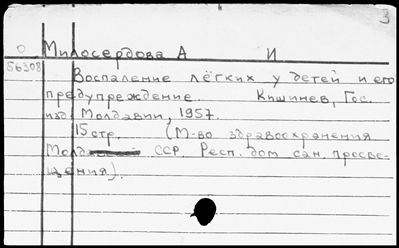 3
О Милосердова А И
56308 Воспаление лёгких у детей и его
предупреждение. Кишинев, Гос.
изд. Молдавии, 1957.
15 стр. (М-во здравоохранения
Молд ССР. Респ. дом сан. просве-
щения).